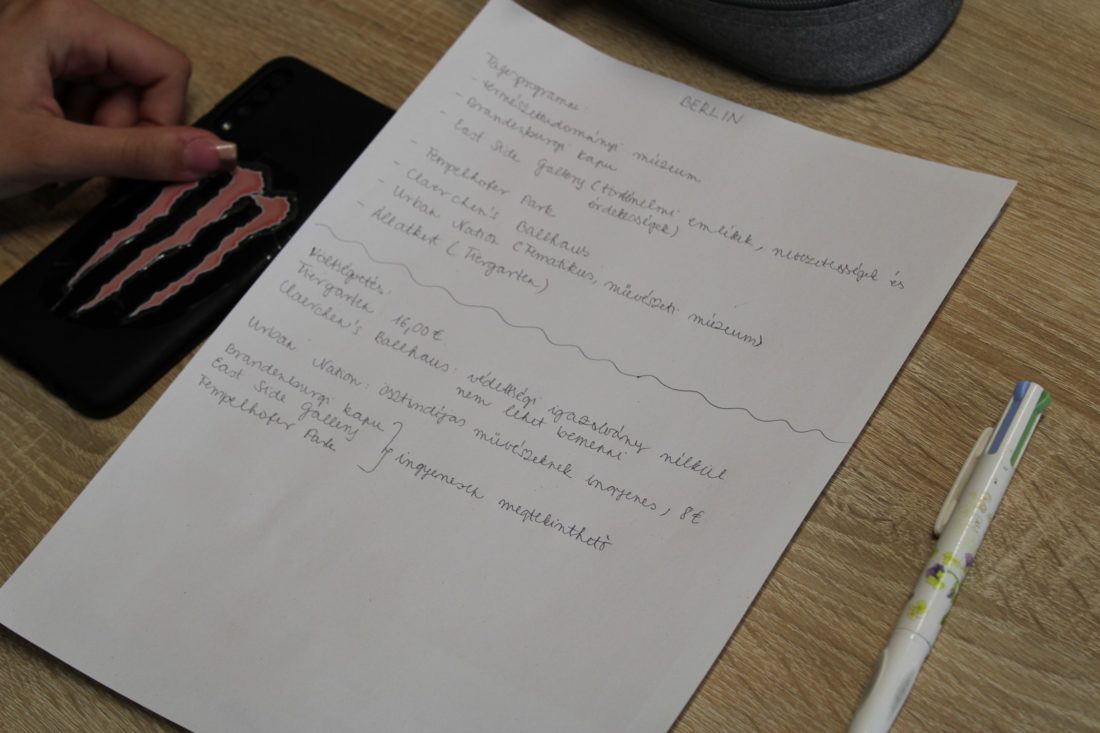 BERLIN
Tagesprogramm:
- Természettudományi múzeum
- Brandenburgi kapu
- East Side Gallery (történelmi emlékek, nevezetességek és
érdekességek)
- Tempelhofer Park
- Claerchen's Ballhaus
- Urban Nation (Tematikus, művészeti múzeum)
- Állatkert (Tiergarten)
Költségvetés:
Tiergarten 16,00 €
Claerchen's Ballhaus: védettségi igazolvány nélkül
nem lehet bemenni
Urban Nation: ösztindíjas művészeknek ingyenes, 8 €
Brandenburgi kapu
East Side Gallery
Tempelhofer Park
ingyenesen megtekinthető